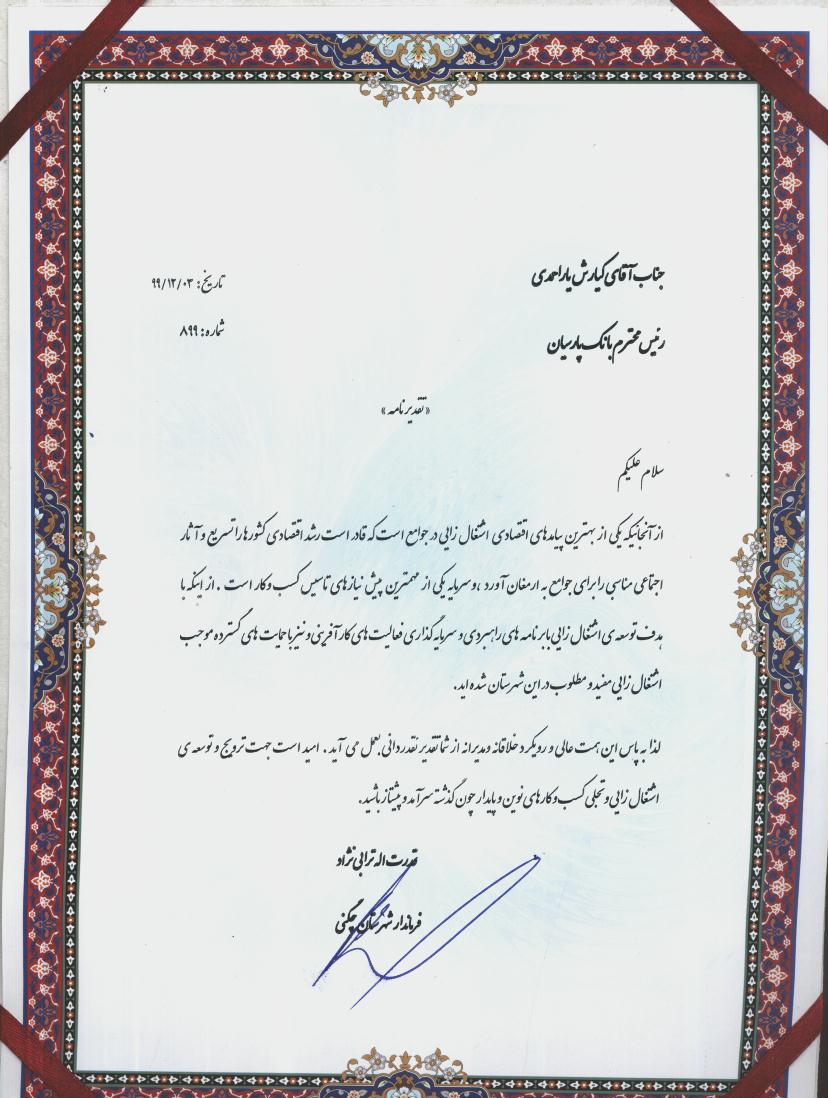 جناب آقای کیارش یاراحمدی
تاریخ: ۹۹/۱۲/۰۳
رئیس محترم بانک پارسیان
شماره: ۸۹۹
«تقدیرنامه»
سلام علیکم
از آنجائیکه یکی از بهترین پیامدهای اقتصادی اشتغال زایی در جوامع است که قادر است رشد اقتصادی کشورها را تسریع و آثار
اجتماعی مناسبی را برای جوامع به ارمغان آورد ،و سرمایه یکی از مهمترین پیش نیازهای تاسیس کسب و کار است . از اینکه با
هدف توسعه ی اشتغال زایی با برنامه های راهبردی و سرمایه گذاری فعالیت های کارآفرینی و نیز با حمایت های گسترده موجب
اشتغال زایی مفید و مطلوب در این شهرستان شده اید.
لذا به پاس این همت عالی و رویکرد خلاقانه و مدیرانه از شما تقدیر نقدردانی بعمل می آید . امید است جهت ترویج و توسعه ی
اشتغال زایی و تجلی کسب و کارهای نوین و پایدار چون گذشته سرآمد و پیشتاز باشید.
قدرت اله ترابی نژاد
فرماندار شهرستان چگنی